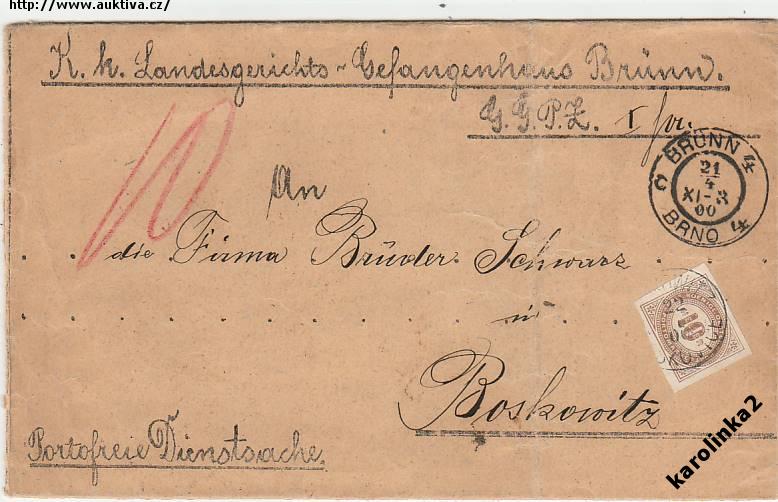 http://www.auktiva.cz/
K. k. Landesgerichts-Gefangenhaus Brünn.
G. G. P. Z.
BRÜNN 4
21
4
XI-3
00
BRNO 4
10
An
die Firma Brüder Schwarz
in
10
Boskowitz
Portofreie Dienstsache.
karolinka2